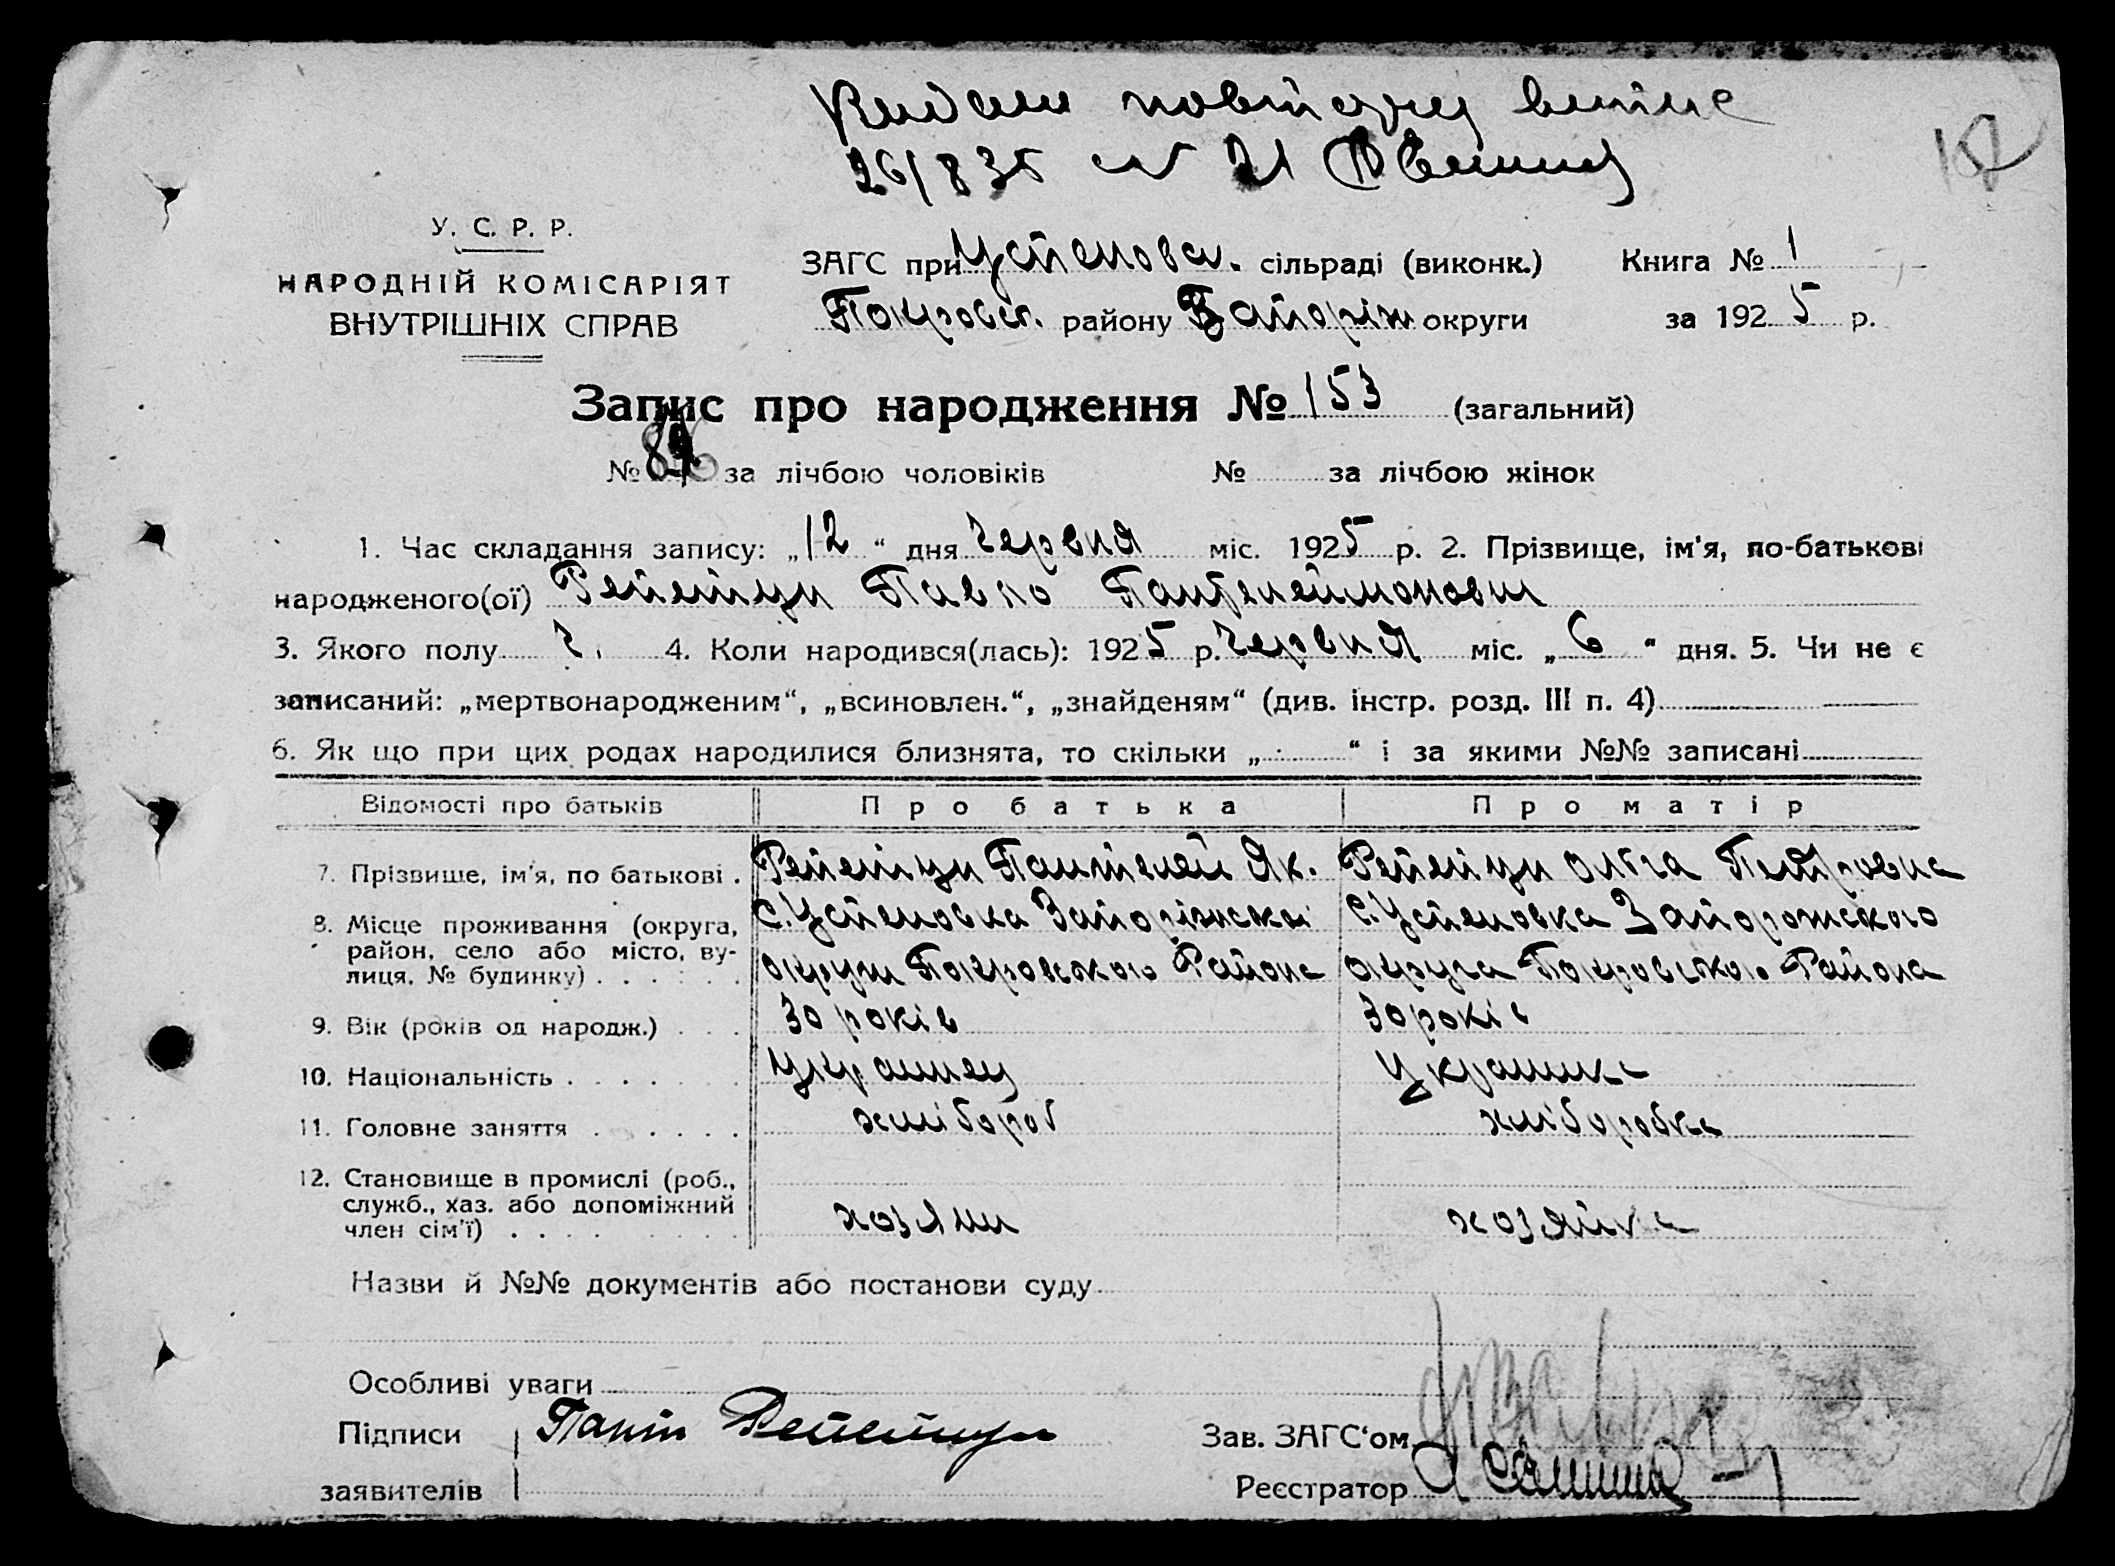 Видали повторну
26/8 35
У. С. Р. Р.
НАРОДНІЙ КОМІСАРІЯТ
ВНУТРІШНІХ СПРАВ
ЗАГС при Успенова. сільраді (виконк.) Книга № 1
Покровск. району Запоріж округи за 1925 р.
Запис про народження № 153 (загальний)
№ за лічбою чоловіків № за лічбою жінок
1. Час складання запису: „12“ дня червня міс. 1925 р. 2. Прізвище, ім'я, по-батькові
народженого(ої) Репетун Павло Пантелеймонович
3. Якого полу ч. 4. Коли народився(лась): 1925 р. червня міс. „6“ дня. 5. Чи не є
записаний: „мертвонародженим“, „всиновлен.“, „знайденям“ (див. інстр. розд. III п. 4)
6. Як що при цих родах народилися близнята, то скільки „ “ і за якими №№ записані
Відомості про батьків Про батька Про матір
7. Прізвище, ім'я, по батькові . Репетун Пантелей Як. Репетун Ольга Петровна
8. Місце проживання (округа, район, село або місто, вулиця, № будинку) . . . . . с. Успеновка Запоріжскої с. Успеновка Запорожского
округи Покровского Района округа Покровського Района
9. Вік (років од народж.) . . . 30 років 30 років
10. Національність . . . . . . . украинец украинка
11. Головне заняття . . . . . . хлібороб хлiборобка
12. Становище в промислі (роб.,
служб., хаз. або допоміжний
член сім'ї) . . . . . . . . хозяин хозяйка
Назви й №№ документів або постанови суду
Особливі уваги
Підписи Пант Репетун Зав. ЗАГС'ом
заявителів Реєстратор